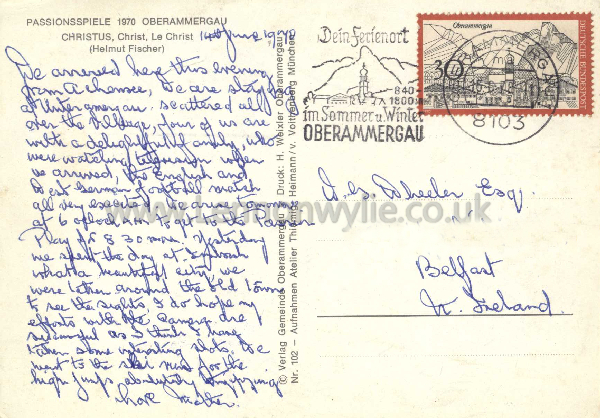 PASSIONSSPIELE 1970 OBERAMMERGAU
CHRISTUS, Christ, Le Christ 14th June 1970
(Helmut Fischer)
We arrived here this evening
from Achensee, we are staying
at Unterammergau scattered all
over the village, four of us are
with a delightful family, who
were watching television when
we arrived, the English and
West German football match
all very excited. We arise tomorrow
at 6 o'clock A.M to get to the Passion
Play for 8 30 am. Yesterday
we spent the day at
what a beautiful city, we
were taken around the old town
to see the sights, I do hope my
efforts with the camera are
successful as I think I have
taken some interesting shots. We
went to the ski run for the
high jumps absolutely
love Mother.
© Verlag Gemeinde Oberammergau - Druck: H. Weixler Oberammergau
Nr. 102 - Aufnahmen Atelier Thiemig Heimann/v. Voithenberg München
Dein Ferienort
840-
1800m
im Sommer u. Winter
OBERAMMERGAU
Oberammergau
30
DEUTSCHE BUNDESPOST
OBERAMMERGAU
8103
Wheeler Esq.
Belfast
N. Ireland.
www.lennonwylie.co.uk